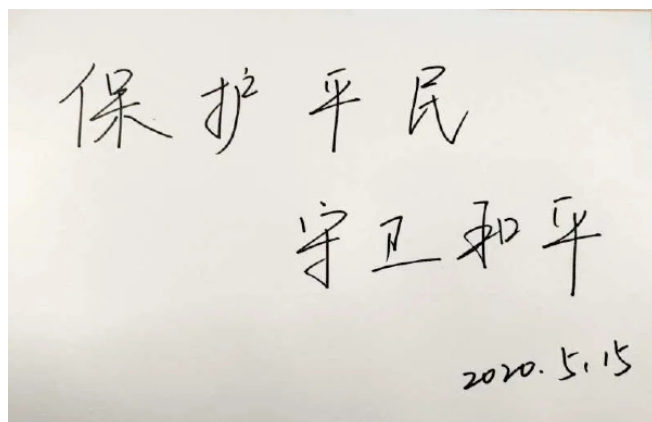 保护平民
守卫和平
2020.5.15